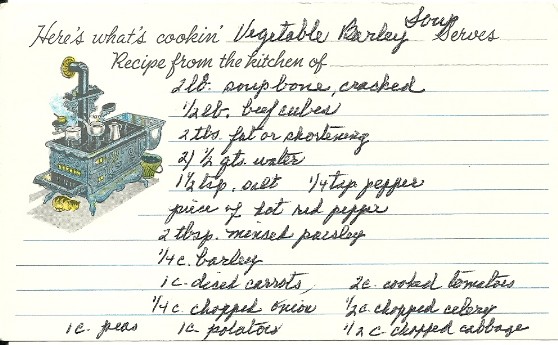 Here's what's cookin' Vegetable Barley Soup Serves
Recipe from the kitchen of
2 lb. soup bone, cracked
1/2 lb. beef cubes
2 tbs. fat or shortening
2 1/2 qts. water
1 1/2 tsp. salt 1/4 tsp pepper
piece of hot red pepper
2 tbsp. minsed parsley
1/4 c. barley
1 c. diced carrots, 2 c. cooked tomatoes
1/4 c. chopped onion 1/2 c. chopped celery
1 c. peas 1 c. potatoes 1/2 c. chopped cabbage